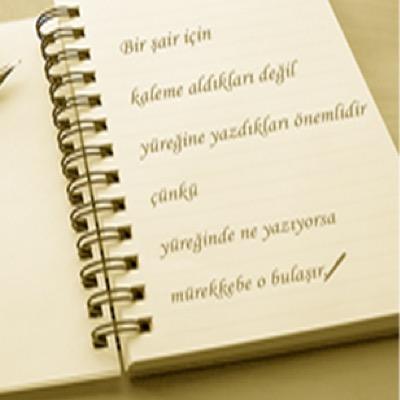 Bir şair için
kaleme aldıkları değil
yüreğine yazdıkları önemlidir
çünkü
yüreğinde ne yazıyorsa
mürekkebe o bulaşır